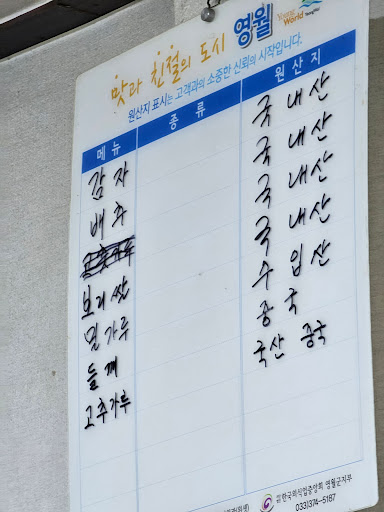 맛과 친절의 도시 영월 Young World
원산지 표시는 고객과의 소중한 신뢰의 시작입니다.
메뉴 종류 원산지
감자 국내산
배추 국내산
고춧가루 국내산
보리쌀 국내산
밀가루 수입산
들깨 중국
고추가루 국산 중국
(사)한국외식업중앙회 영월군지부
033)374-5187